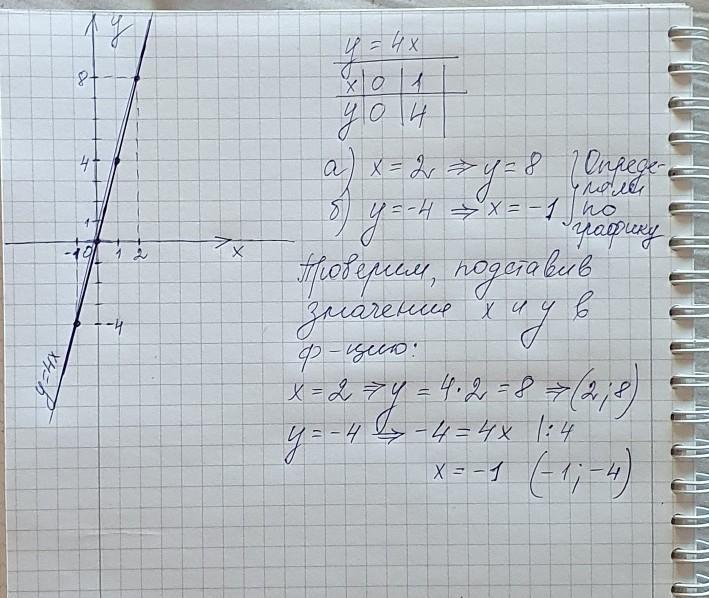 y
8
4
1
-1 0 1 2 x
-4
y=4x
y = 4x
x 0 1
y 0 4
а) x = 2 ⇒ y = 8
б) y = -4 ⇒ x = -1
Опреде-
лили
по
графику
Проверим, подставив
значения x и y в
ф-цию:
x = 2 ⇒ y = 4·2 = 8 ⇒ (2; 8)
y = -4 ⇒ -4 = 4x |:4
x = -1 (-1; -4)